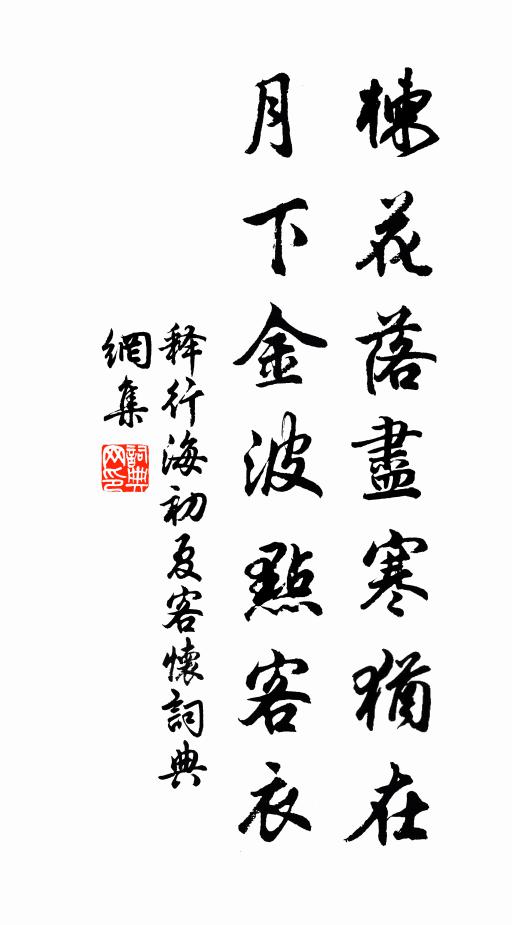 楝花落盡寒猶在
月下金波點客衣
释行海初夏客懷詞典
網集
詞典网印